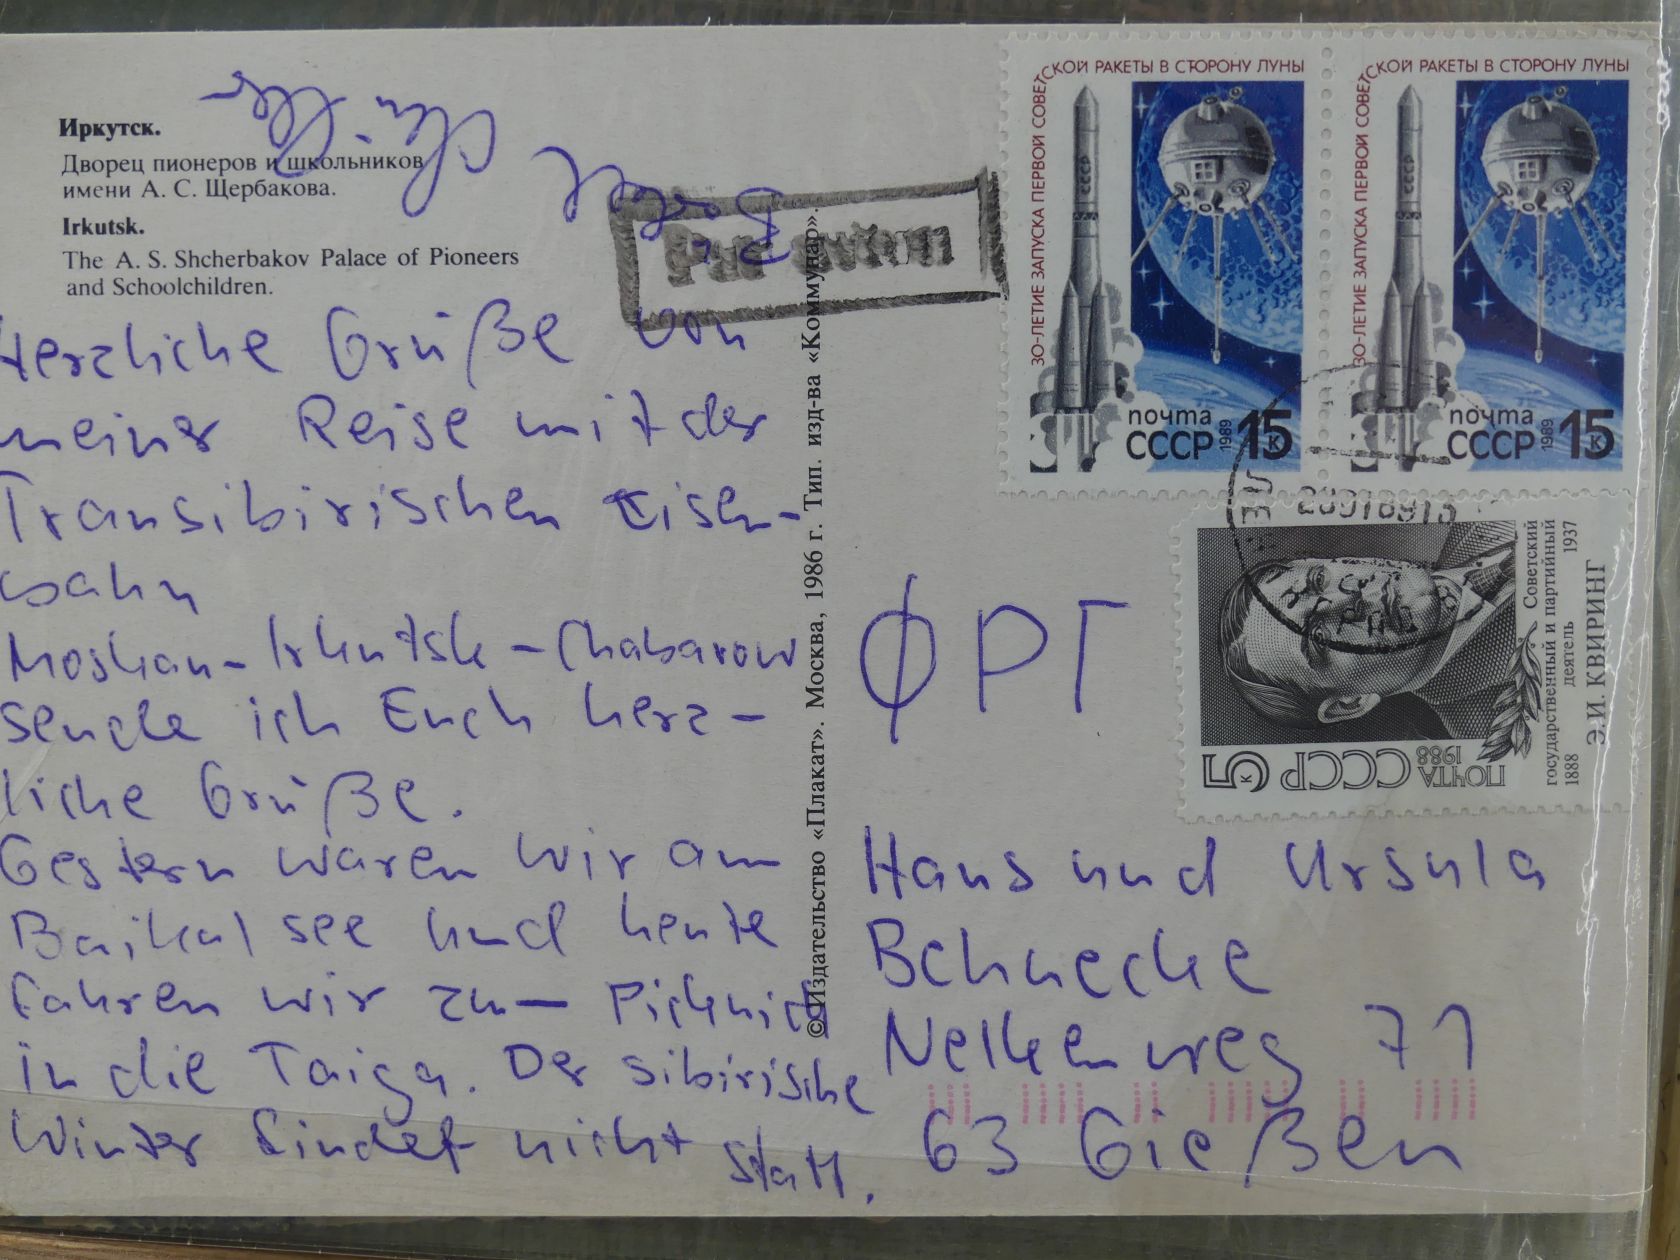 Иркутск.
Дворец пионеров и школьников
имени А. С. Щербакова.
Irkutsk.
The A. S. Shcherbakov Palace of Pioneers
and Schoolchildren.
Par avion
Herzliche Grüße von
meiner Reise mit der
Transsibirischen Eisen-
bahn
Moskau - Irkutsk - Chabarow
sende ich Euch herz-
liche Grüße.
Gestern waren wir am
Baikalsee und heute
fahren wir zum Picknick
in die Taiga. Der sibirische
Winter findet nicht statt.
© Издательство «Плакат». Москва, 1986 г. Тип. изд-ва «Коммунар».
30-ЛЕТИЕ ЗАПУСКА ПЕРВОЙ СОВЕТСКОЙ РАКЕТЫ В СТОРОНУ ЛУНЫ
СССР
почта
СССР 1989 15 к
30-ЛЕТИЕ ЗАПУСКА ПЕРВОЙ СОВЕТСКОЙ РАКЕТЫ В СТОРОНУ ЛУНЫ
СССР
почта
СССР 1989 15 к
5 к ПОЧТА СССР 1988
Советский
государственный и партийный
1888 деятель 1937
Э.И. КВИРИНГ
ФРГ
Hans und Ursula
Nelkenweg 71
63 Gießen